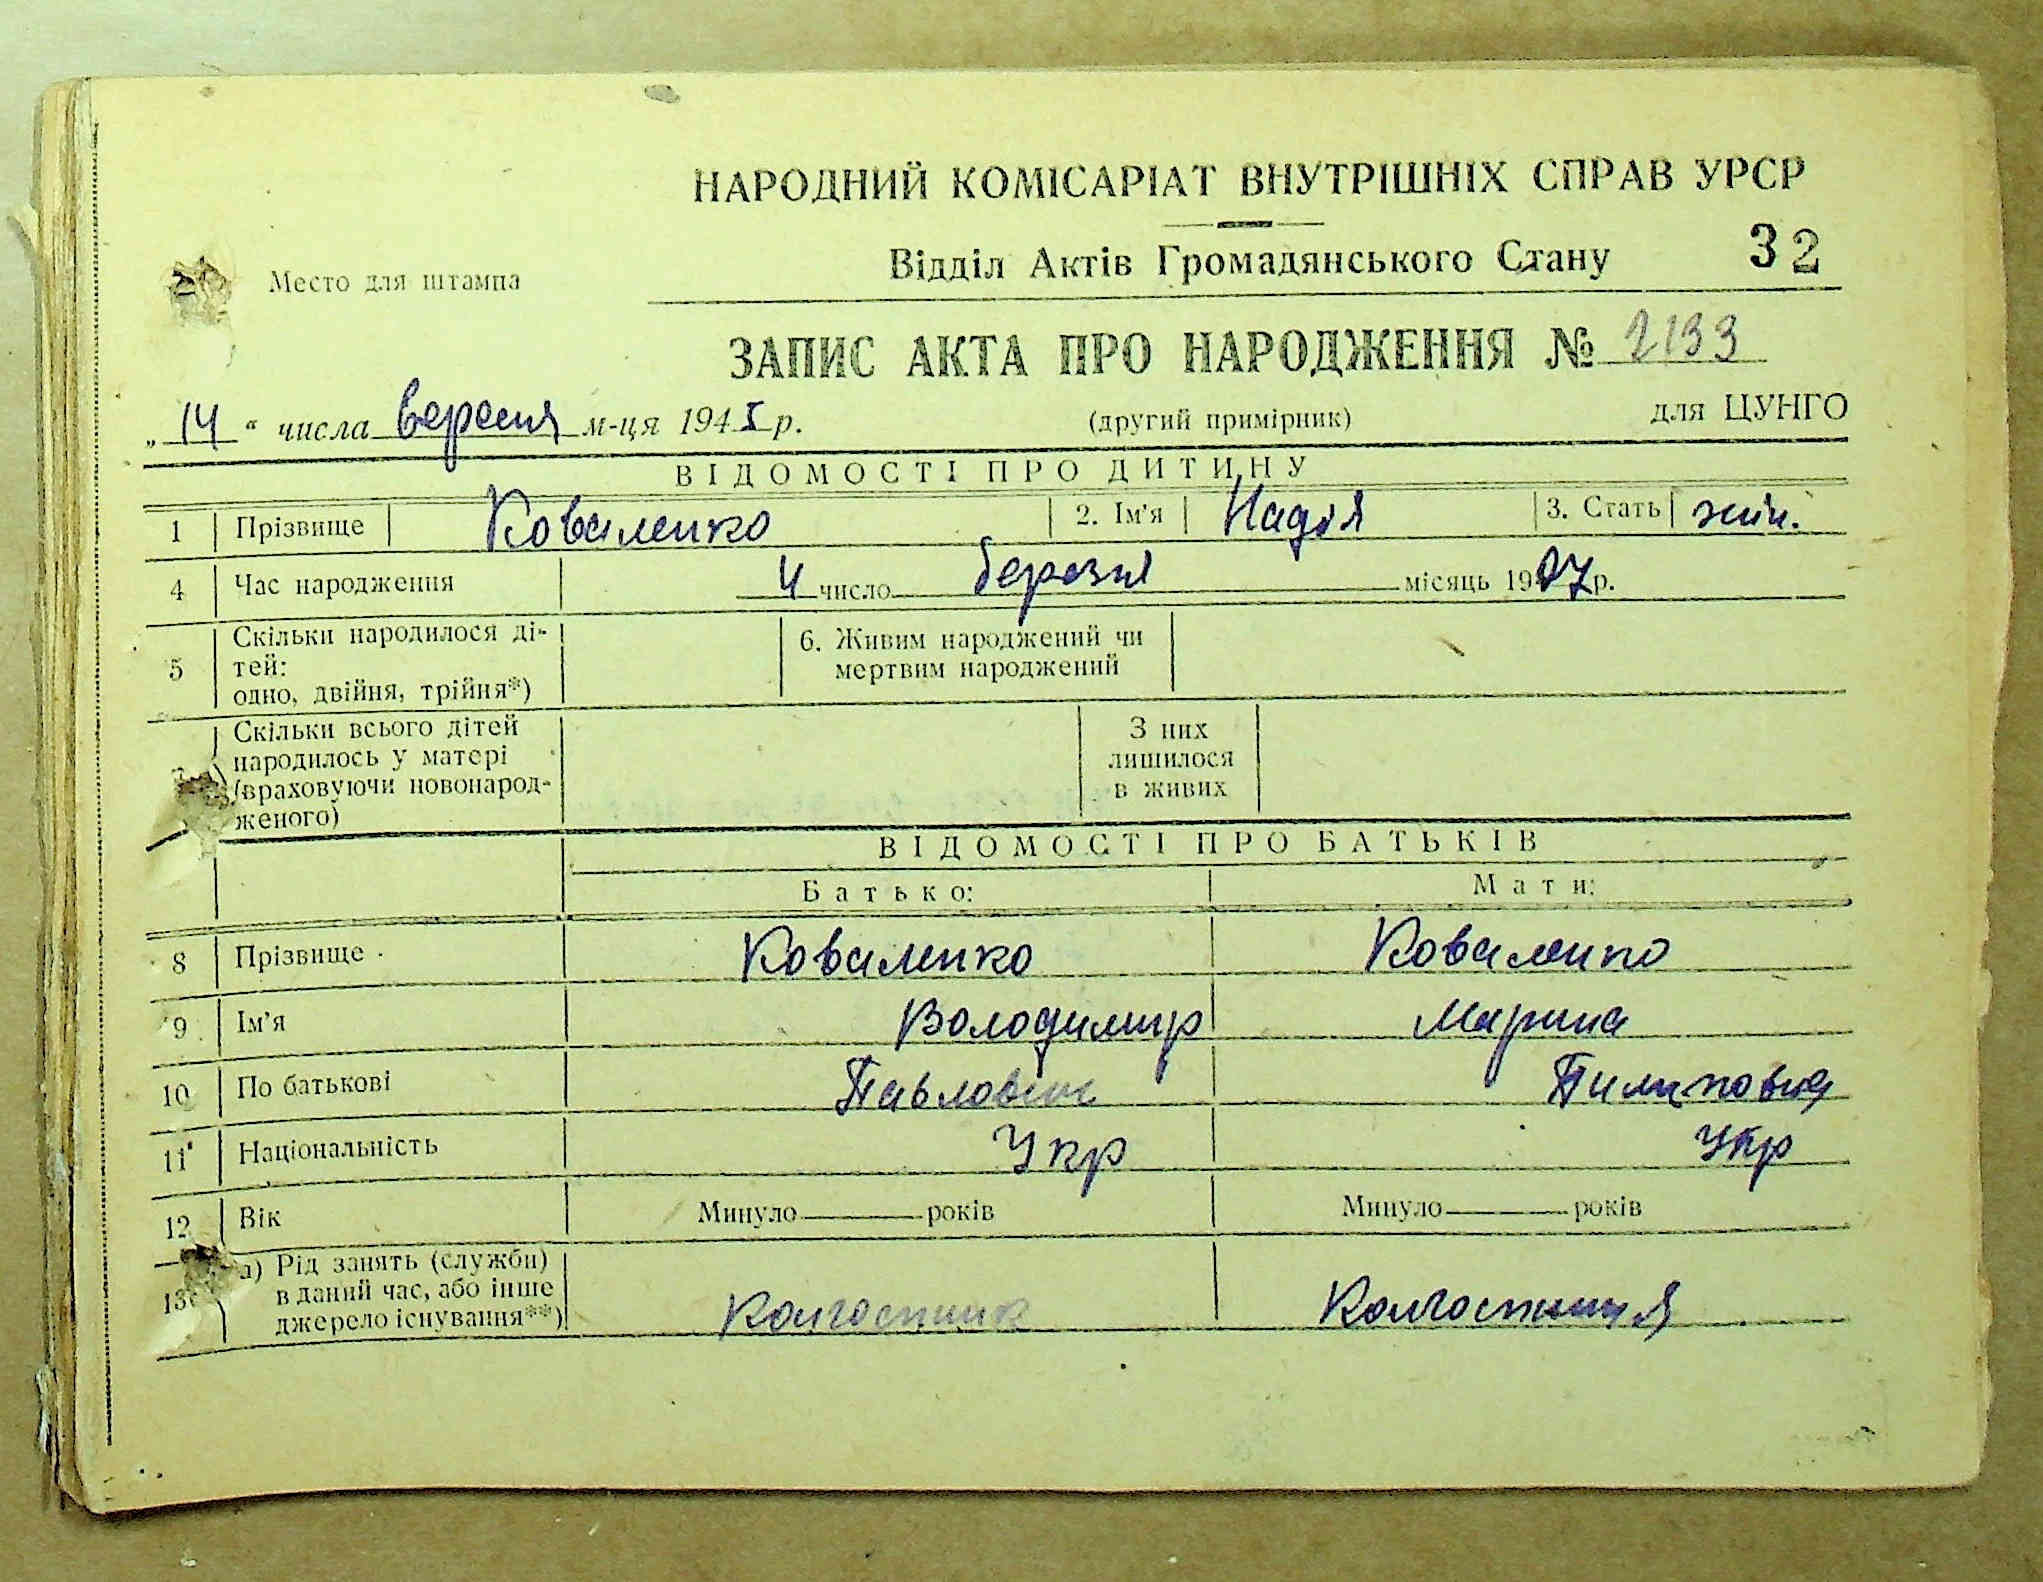 НАРОДНИЙ КОМІСАРІАТ ВНУТРІШНІХ СПРАВ УРСР
Відділ Актів Громадянського Стану 32
Место для штампа
ЗАПИС АКТА ПРО НАРОДЖЕННЯ № 2133
„14“ числа вересня м-ця 1945 р. (другий примірник) для ЦУНГО
ВІДОМОСТІ ПРО ДИТИНУ
1 Прізвище Коваленко 2. Ім'я Надія 3. Стать жін.
4 Час народження 4 число березня місяць 1927 р.
5 Скільки народилося ді-
тей:
одно, двійня, трійня*)
6. Живим народжений чи
мертвим народжений
Скільки всього дітей
народилось у матері
(враховуючи новонарод-
женого)
З них
лишилося
в живих
ВІДОМОСТІ ПРО БАТЬКІВ
Батько: Мати:
8 Прізвище Коваленко Коваленко
9 Ім'я Володимир Марина
10 По батькові Павлович Пилиповна
11 Національність Укр Укр
12 Вік Минуло років Минуло років
13 а) Рід занять (служби)
в даний час, або інше
джерело існування**)
Колгоспник Колгоспниця